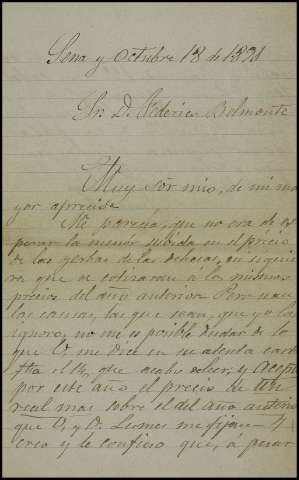 Sena y Octubre 18 de 1891
Sr. D. Federico Belmonte
Muy Sor mio, de mi ma
yor aprecio:
Me parecia, que no era de es
perar la menor subida en el precio
de las yerbas de las dehesas, en siquie
ra que se cotizaran á los mismos
precios del año anterior. Pero sean
las causas, las que sean, que yo las
ignoro, no me es posible dudar de lo
que V. me dice en su atenta carta
fta el 14, que acabo de leer; y acepto
por este año el precio de un
real mas sobre el del año anterior
que V. y D. Lesmes me fijan. Y
creo y le confieso que, á pesar